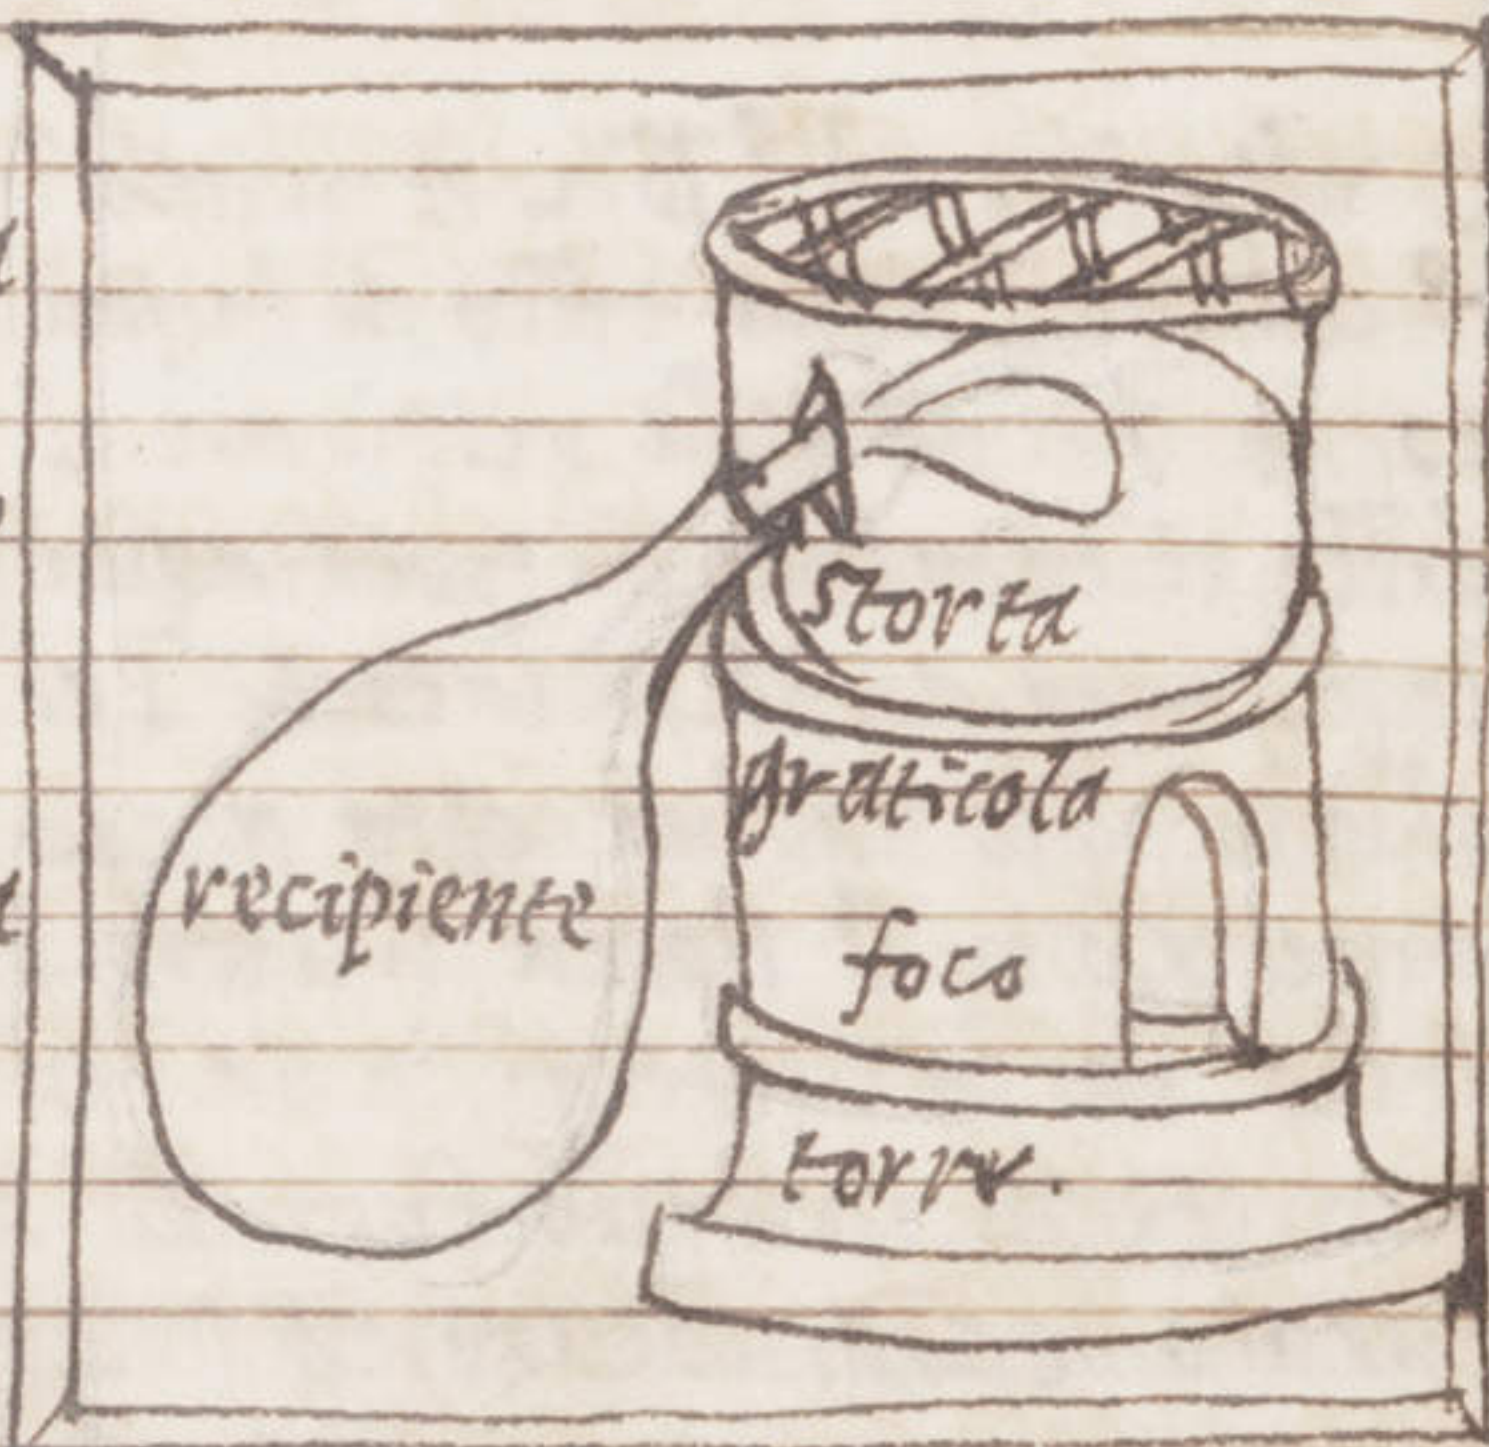 storta
graticola
recipiente
foco